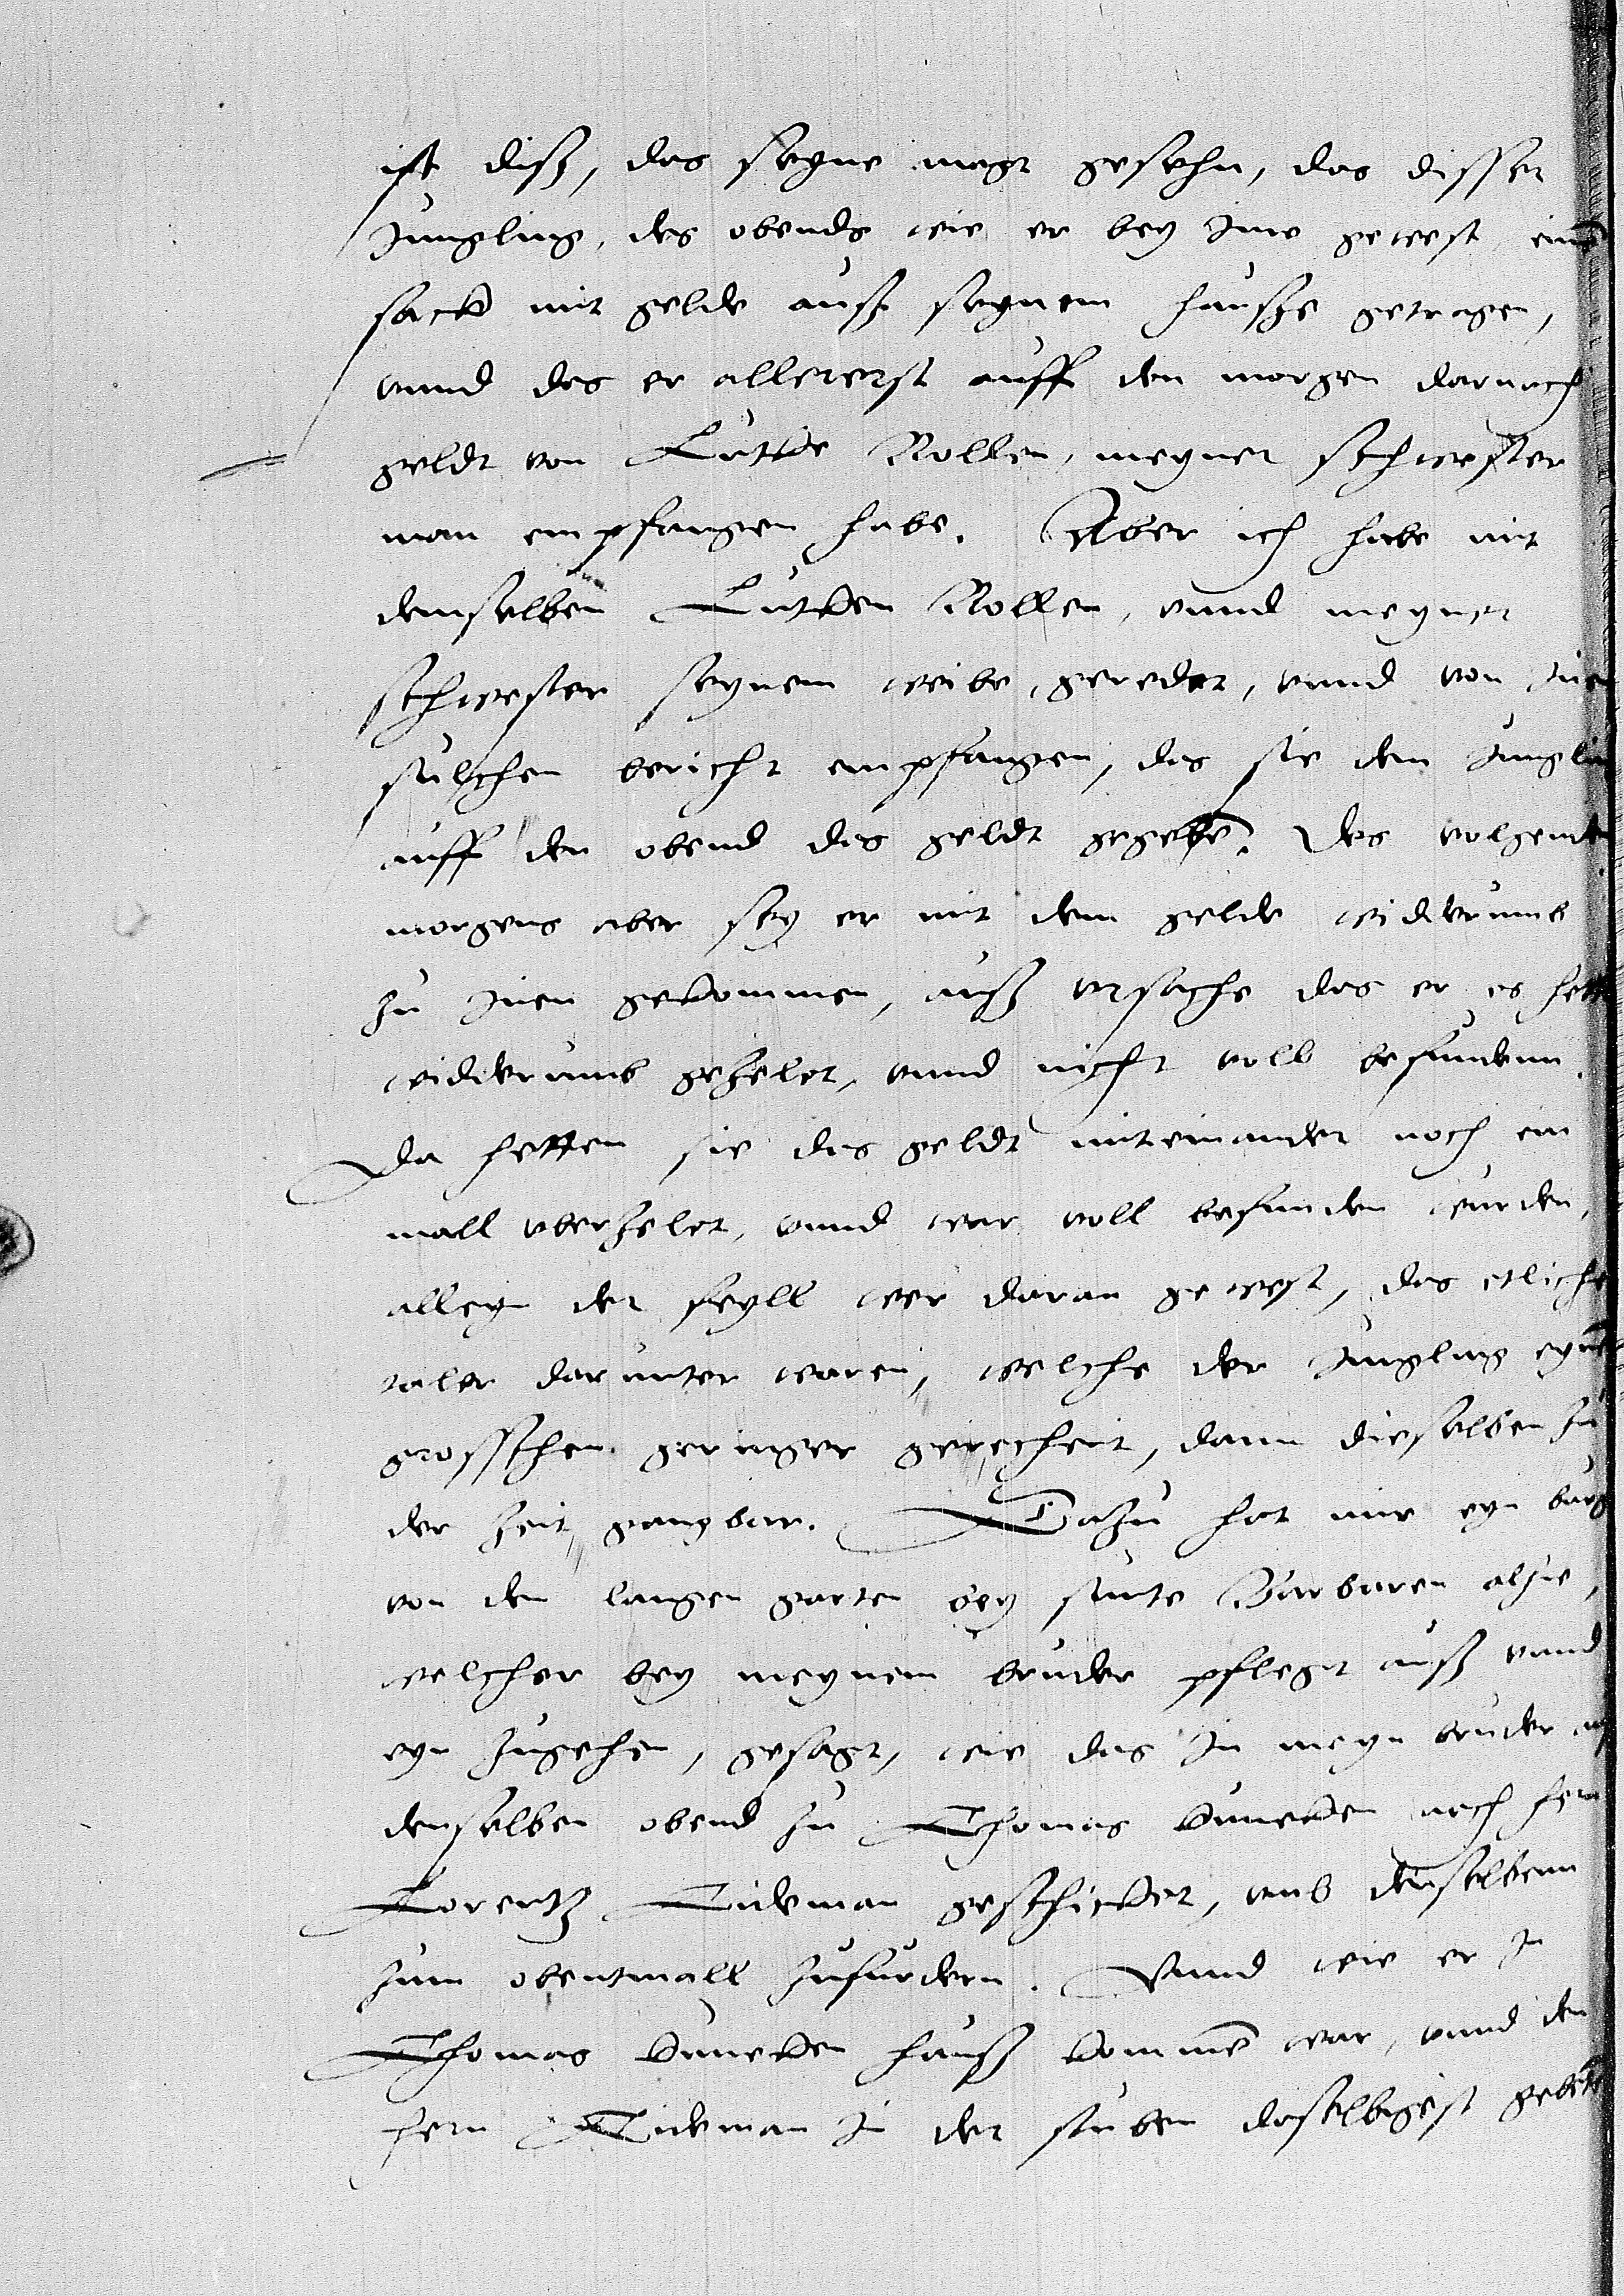 ist diß, das seyne magt gesehn, das disser
Jungling, des obends wie er bey Ime gewest, eine
sack mit gelde auß seynem hausze getragen,
vnnd das er allererst auff den morgen darnach
geldt von Lutke Rollen, meyner schwester
man empfangen habe. Aber ich habe mit
demselben Lutken Rollen, vnnd meyner
schwester seynem weibe, geredet, vnnd von Inen
sulchen bericht empfangen, das sie dem Jungli
auff den obend das geldt gegeben. Des volgende
morgens aber sey er mit dem gelde widerumb
zu Inen gekommen, auß vrsache das er es hett
widerumb gezelet, vnnd nicht voll befundenn.
Da hetten sie das geldt miteinander noch ein
mall vberzelet, vnnd war voll befunden wurden,
alleyn der feyll wer daran gewest, das etliche
taler darunter waren, welche der Jungling eyne
grosschen geringer gerechent, dann dieselben zu
der zeit gangbar. Dazu hat mir eyn burg
von den langen garten bey sunte Barbaren alhie,
welcher bey meynem bruder pfleget auß vnnd
eyn zugehen, gesagt, wie das In meyn bruder
denselben obend zu Thomas kuneken nach hern
Lorentz Tideman geschicket, vmb denselbenn
zum obentmall zufurdern. Vnnd wie er In
Thomas kuneken hauß komme war, vnnd den
hern Tideman In der stuben daselbigest gebete